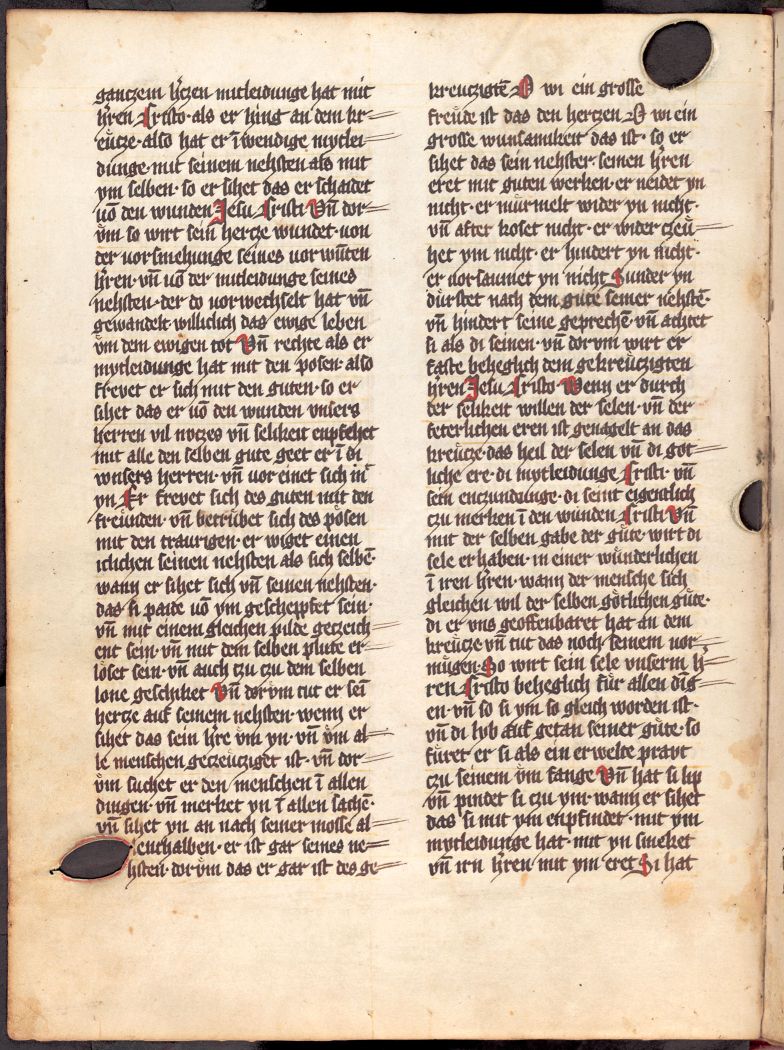 ganczem h̾czen mitleidunge hat mit
h̾ren Cristo · als er hing an dem kr-
eücze · also hat er ī wendige mytlei-
dunge · mit seinem nehsten als mit
ym selben · so er sihet das er schaidet
uō den wunden Jesu Cristi Vn̄ dor-
v̈m so wirt sein hertze wundet · uon
der uorsmehunge seines uorwūten
h̾ren · vn̄ uō der mitleidunge seines
nehsten · der do uorwechselt hat vn̄
gewandelt williclich das ewige leben
v̈m dem ewigen tot Vn̄ rechte als er
mytleidunge hat mit den posen · also
frevet er sich mit den guten · so er
sihet das er uō den wunden vnsers
herren vil notzes vn̄ selikeit enpfehet
mit alle den selben gute geet er ī di
wnsers herren · vn̄ uor einet sich in
yn Er frevet sich des guten mit den
freünden · vn̄ betrübet sich des pösen
mit den traurigen · er wiget einen
iclichen seinen nehsten als sich selbē ·
wann er sihet sich vn̄ seinen nehsten ·
das si paide uō ym gescheppfet sein ·
vn̄ mit einem gleichen pilde geczeich-
ent sein · vn̄ mit dem selben plute er-
löset sein · vn̄ auch czu czu dem selben
lone geschiket Vn̄ dorv̈m tut er sei̅
hertze auf seinem nehsten · wenn er
sihet das sein h̾re v̈m yn · vn̄ v̈m al-
le menschen gecreücziget ist · vn̄ dor-
v̈m suchet er den menschen ī allen
dingen · vn̄ merket yn ī allen sachē ·
vn̄ sihet yn an nach seiner mosse al-
lenthalben · er ist gar seines ne-
hsten · dorv̈m das er gar ist des ge-
kreuczigtē O wi ein grosse
freüde ist das den hertzen O wi ein
grosse wunsamikeit das ist · so er
sihet das sein nehster · seinen h̾ren
eret mit guten werken · er neidet yn
nicht · er mürmelt wider yn nicht ·
vn̄ after koset nicht · er wider czeü-
het ym nicht · er hindert yn nicht ·
er uorsaumet yn nicht Sunder yn
dürstet nach dem gute seiner nehstē ·
vn̄ hindert seine geprechē · vn̄ achtet
si als di seinen · vn̄ dorvm wirt er
faste beheglich dem gekreüczigten
h̾ren Jesu Cristo Wenn er durch
der selikeit willen der selen · vn̄ der
feterlichen eren ist genagelt an das
kreücze · das heil der selen vn̄ di got-
liche ere · di mytleidunge Cristi · vn̄
sein enczundunge · di seint eigentlich
czu merken ī den wunden Cristi Vn̄
mit der selben gabe der güte · wirt di
sele erhaben · in einer wünderlichen
ī iren h̾ren · wann der mensche sich
gleichen wil der selben götlichen güte ·
di er vns geoffenbaret hat an dem
kreücze vn̄ tut das noch seinem uor-
mügen · So wirt sein sele vnserm h̾-
ren Cristo beheglich für allen dig-
en · vn̄ so si ym so gleich worden ist ·
vn̄ di lyb auf getan seiner güte · so
füret er si als ein erwelte pravt
czu seinem vm fange Vn̄ hat si lip
vn̄ pindet si czu ym · wann er sihet
das si mit ym enpfindet · mit ym
mytleidunge hat · mit yn smeket
vn̄ irn h̾ren mit ym eret Si hat